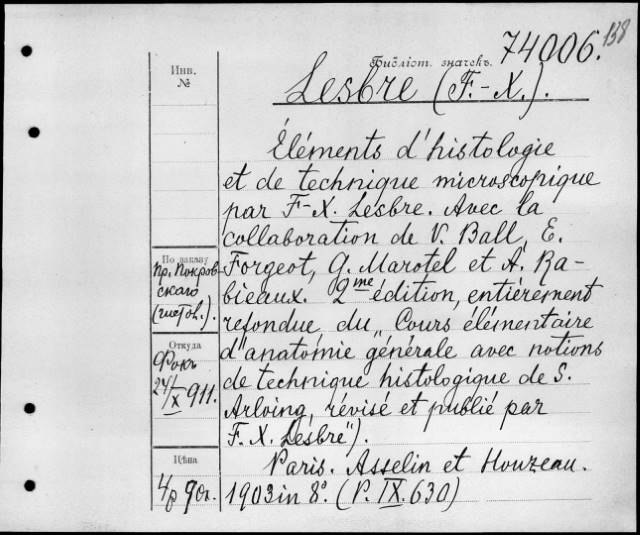 138
74006.
Инв.
№
Библіот. значекъ.
Lesbre (F.-X.).
Éléments d'histologie
et de technique microscopique
par F-X. Lesbre. Avec la
collaboration de V. Ball, E.
Forgeot, G. Marotel et A. Ra-
bieaux. 2me édition, entièrement
refondue du „Cours élémentaire
d'anatomie générale avec notions
de technique histologique de S.
Arloing, révisé et publié par
F. X. Lesbre").
Paris. Asselin et Houzeau.
1903 in 8°. (P. IX. 630)
По заказу
Пр. Покров-
скаго
(гистол.).
Откуда
Фокъ
24/X 911.
Цѣна
4р 90к.